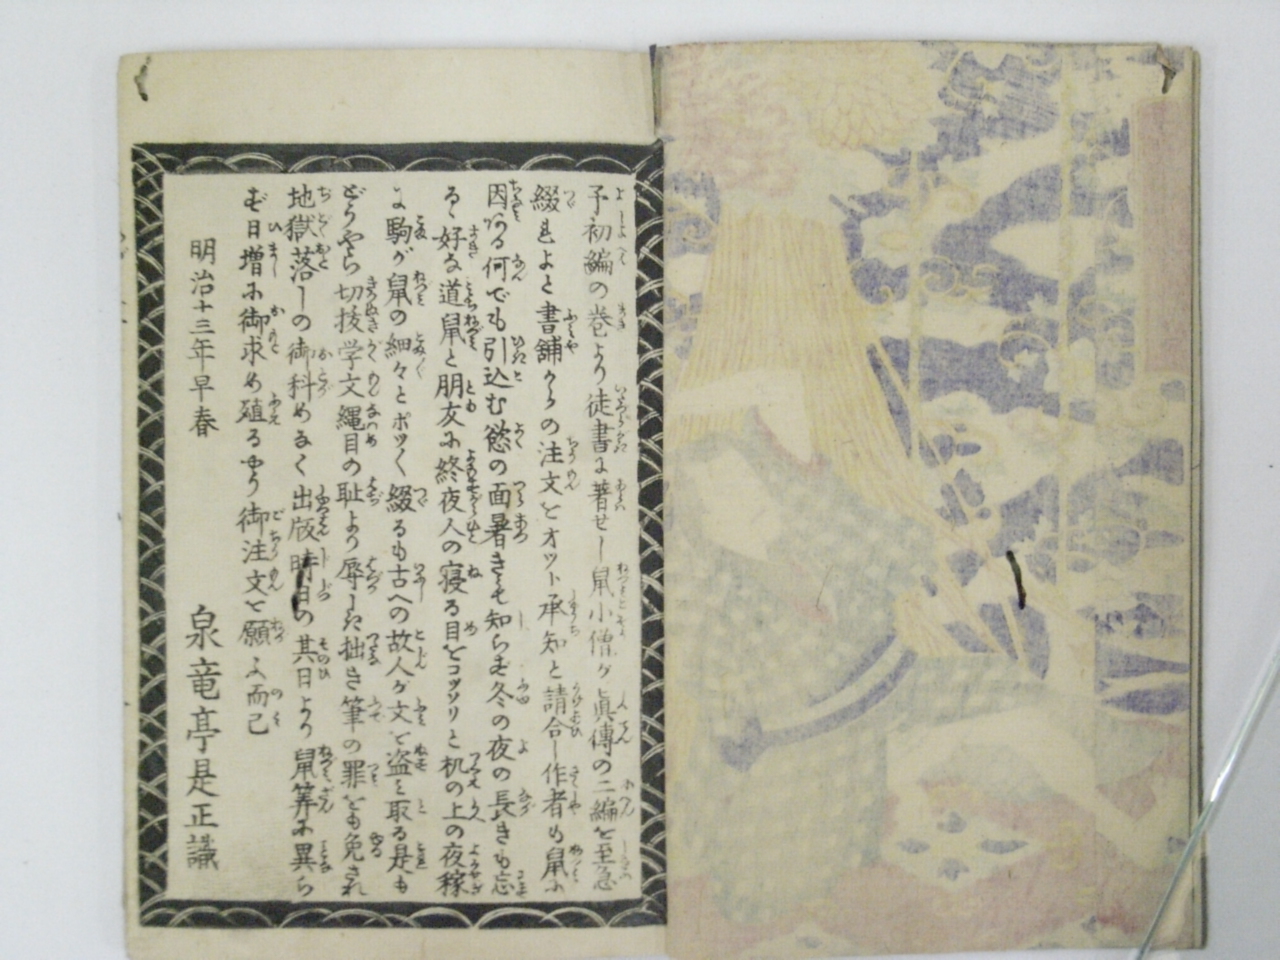 予初編の巻より徒書に著せし鼠小僧が眞傳の二編を至急
綴れよと書舗からの注文をオツト承知と請合し作者も鼠に
因ある何でも引込む慾の面暑きも知らず冬の夜の長きも忘
るゝ好な道鼠と朋友に終夜人の寝る目をコツソリと机の上の夜稼
に駒が鼠の細々とポツ〳〵綴るも古への故人が文を盗み取る是も
どうやら切抜学文縄目の耻より辱しき拙き筆の罪をも免され
地獄落しの御科めなく出版時日の其日より鼠算に異ら
ず日増に御求め殖るやう御注文を願ふ而己
明治十三年早春
泉竜亭是正識